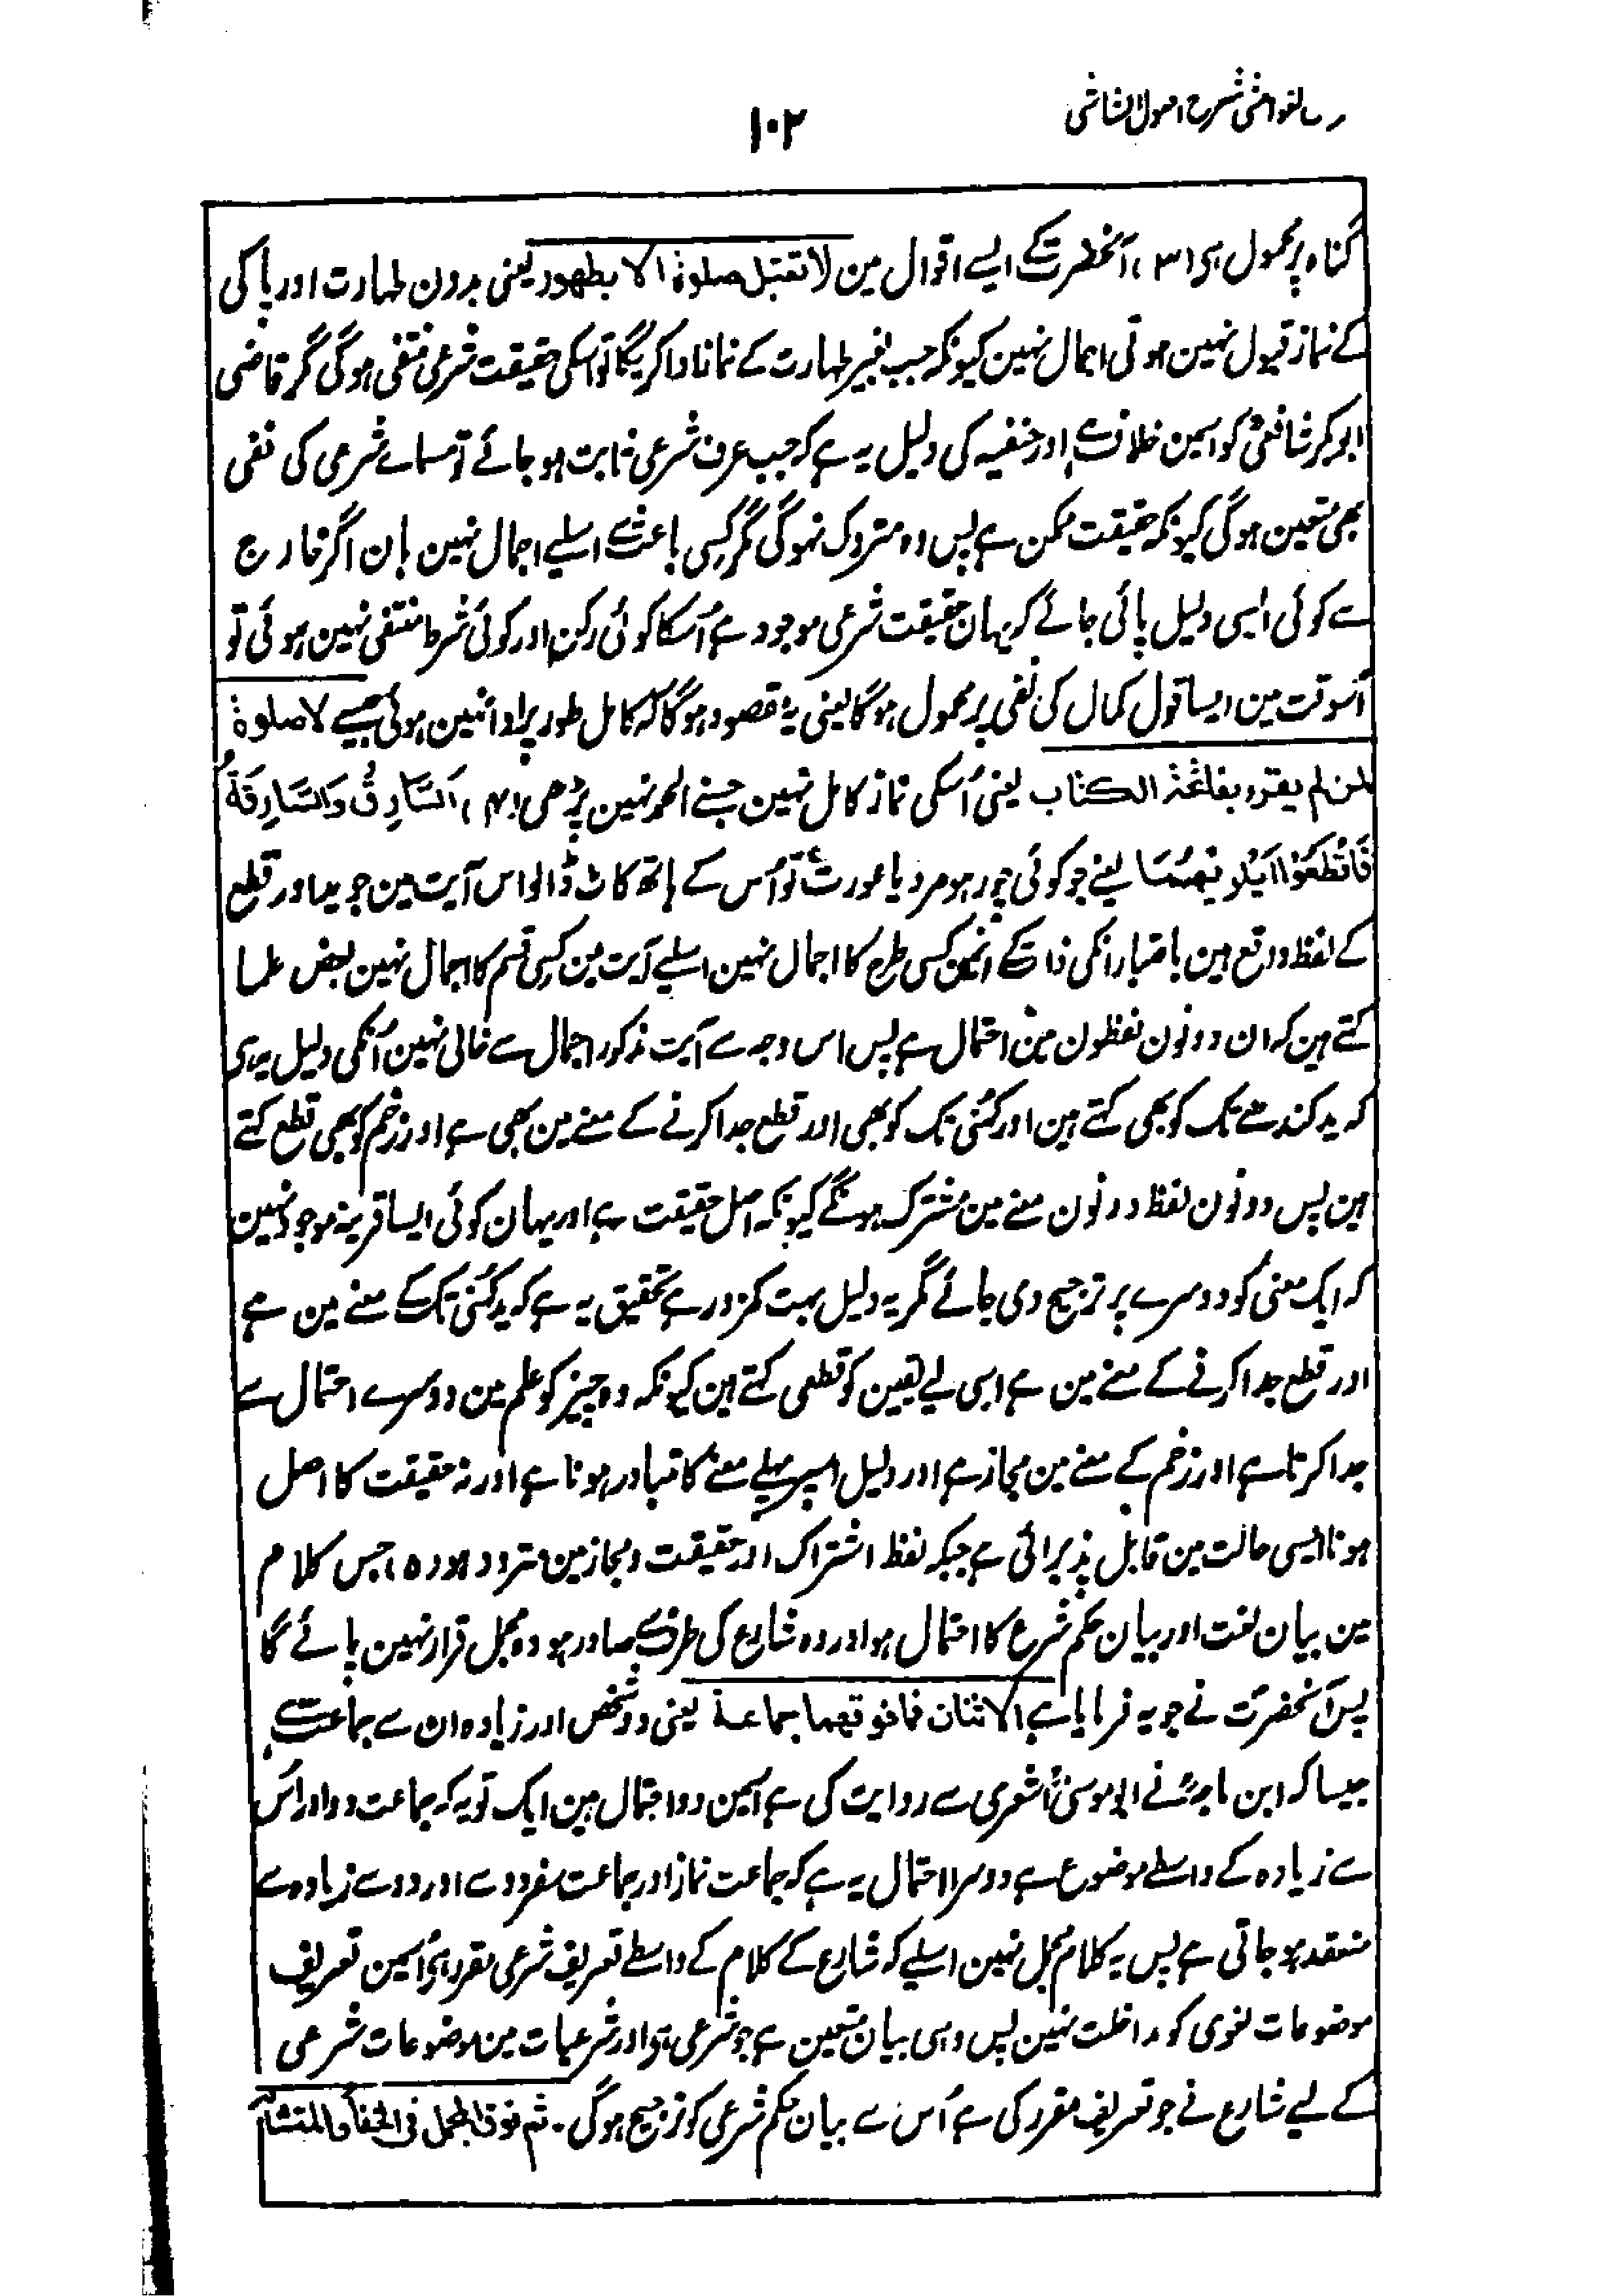 شرح اصول الشاشی
۱۰۲
گناہ پر محمول ہی (۳) آنحضرتؐ کے ایسے اقوال مین لا تقبل صلوۃ الا بطھور یعنی بدون طہارت اور پاکی
کے نماز قبول نہین ہوتی اجمال نہین کیونکہ جب بغیر طہارت کے نماز ادا کریگا تو اسکی حقیقت شرعی منتفی ہوگی مگر قاضی
ابوبکر شافعیؒ کو اسمین خلاف ہے اور حنفیہ کی دلیل یہ ہے کہ جب عرف شرعی ثابت ہو جائے تو مسماے شرعی کی نفی
بھی متعین ہوگی کیونکہ حقیقت ممکن ہے پس وہ متروک نہوگی مگر کسی باعث سے اسلیے اجمال نہین ہان اگر خارج
سے کوئی ایسی دلیل پائی جائے کہ یہان حقیقت شرعی موجود ہے اُسکا کوئی رکن اور کوئی شرط منتفی نہین ہوئی تو
اُسوقت مین ایسا قول کمال کی نفی پر محمول ہوگا یعنی یہ مقصود ہوگا کہ کامل طور پر ادا نہین ہوئی جیسے لا صلوۃ
لمن لم یقرء بفاتحۃ الکتاب یعنی اُسکی نماز کامل نہین جسنے الحمد نہین پڑھی (۴) اَلسَّارِقُ وَالسَّارِقَۃُ
فَاقْطَعُوْا اَیْدِیَھُمَا یعنے جو کوئی چور ہو مرد یا عورت تو اُس کے ہاتھ کاٹ ڈالو اس آیت مین جو ید اور قطع
کے لفظ واقع ہین باعتبار انکی ذات کے انمین کسی طرح کا اجمال نہین اسلیے آیت مین کسی قسم کا اجمال نہین بعض علما
کہتے ہین کہ ان دونون لفظون مین احتمال ہے پس اس وجہ سے آیت مذکور اجمال سے خالی نہین اُنکی دلیل یہ ہی
کہ ید کندھے تک کو بھی کہتے ہین اور کہنی تک کو بھی اور قطع جدا کرنے کے معنے مین بھی ہے اور زخم کو بھی قطع کہتے
ہین پس دونون لفظ دونون معنے مین مشترک ہونگے کیونکہ اصل حقیقت ہے اور یہان کوئی ایسا قرینہ موجود نہین
کہ ایک معنی کو دوسرے پر ترجیح دی جائے مگر یہ دلیل بہت کمزور ہے تحقیق یہ ہے کہ ید کہنی تک کے معنے مین ہے
اور قطع جدا کرنے کے معنے مین ہے اسی لیے یقین کو قطعی کہتے ہین کیونکہ وہ چیز کو علم مین دوسرے احتمال سے
جدا کرتا ہے اور زخم کے معنے مین مجاز ہے اور دلیل اسپر پہلے معنے کا تبادر ہونا ہے اور نہ حقیقت کا اصل
ہونا ایسی حالت مین قابل پذیرائی ہے جبکہ لفظ اشتراک اور حقیقت و مجاز مین متردد ہو (۵) جس کلام
مین بیان لغت اور بیان حکم شرع کا احتمال ہو اور وہ شارع کی طرف سے صادر ہو وہ مجمل قرار نہین پائے گا
پس آنحضرتؐ نے جو یہ فرمایا ہے الاثنان فما فوقھما جماعۃ یعنی دو شخص اور زیادہ ان سے جماعت ہے
جیسا کہ ابن ماجہؒ نے ابو موسیٰؓ اشعری سے روایت کی ہے اسمین دو احتمال ہین ایک تو یہ کہ جماعت دو اور اس
سے زیادہ کے واسطے موضوع ہے دوسرا احتمال یہ ہے کہ جماعت نماز اور جماعت سفر دو سے اور دو سے زیادہ سے
منعقد ہو جاتی ہے پس یہ کلام مجمل نہین اسلیے کہ شارع کے کلام کے واسطے تعریف شرعی مقرر ہی اسمین تعریف
موضوعات لغوی کو مداخلت نہین پس وہی بیان متعین ہے جو شرعی ہی اور شرعیات مین موضوعات شرعی
کے لیے شارع نے جو تعریف مقرر کی ہے اُس سے بیان حکم شرعی کو ترجیح ہوگی۔ ثم فوق المجمل فی الخفاء المتشابہ